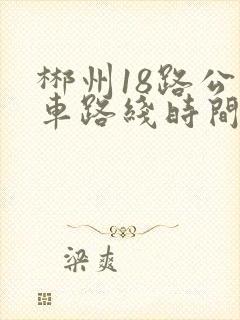 郴州18路公
車路綫時間
梁爽